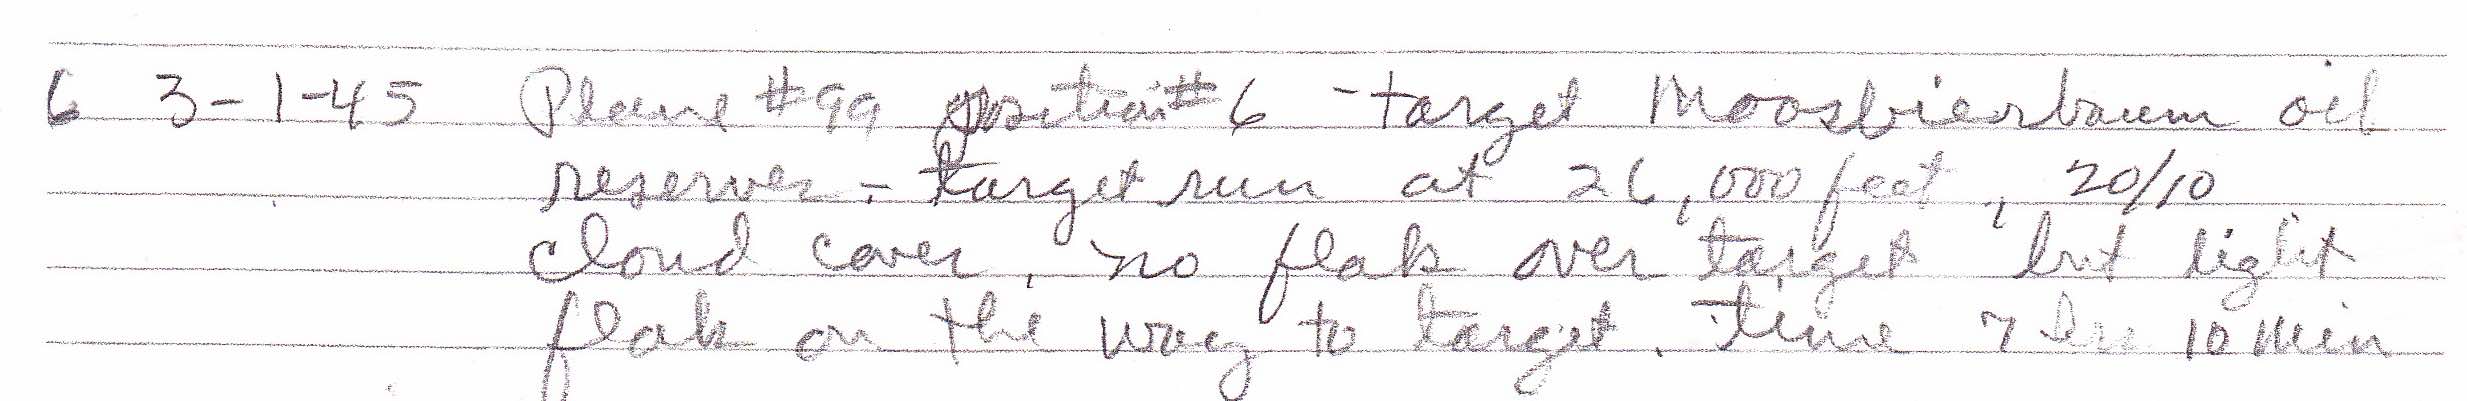 6 3-1-45 Plane #99 position #6 - target Moosbierbaum oil
reserves - target run at 26,000 feet, 20/10
cloud cover, no flak over target but light
flak on the way to target. Time 7 hrs 10 min